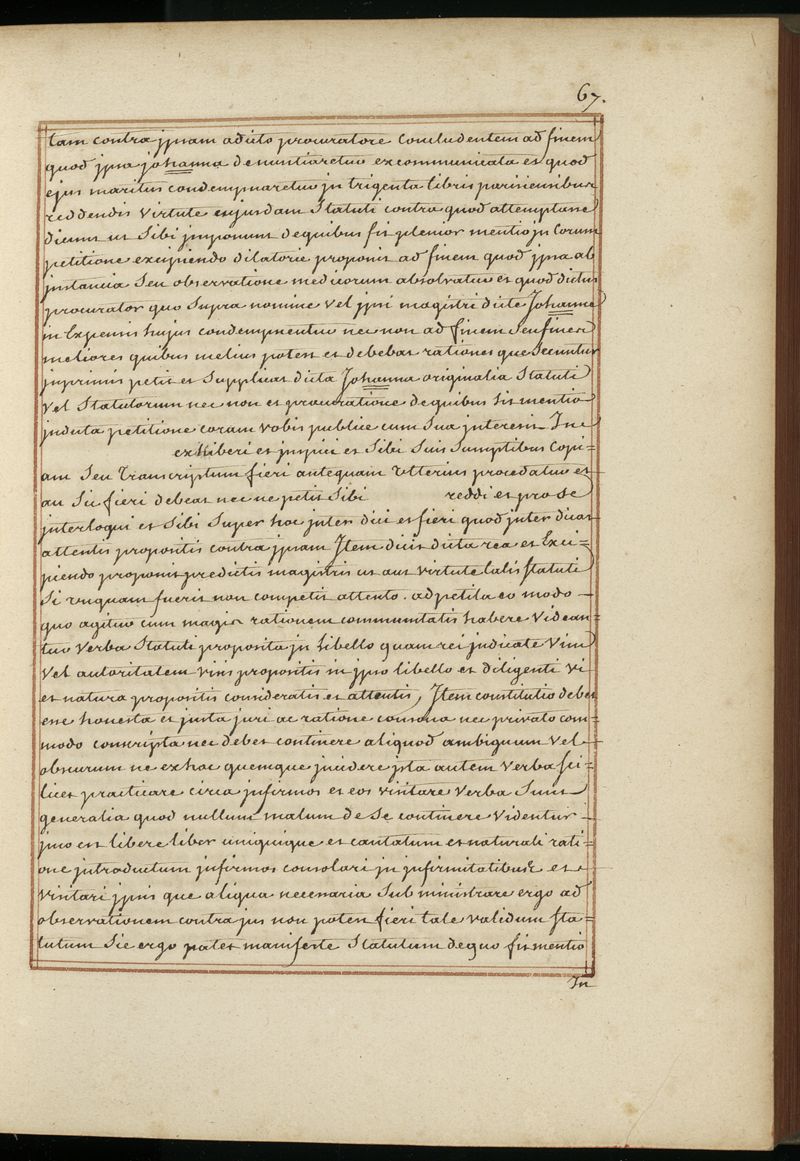 67.
tam contra jpsam adicto procuratore Concludentem ad finem
quod jpsa johanna denuntiaretur excommunicata et quod
ejus maritus condempnaretur jn trigenta libris parisiensibus
reddendis virtute cujusdam Statuti contra quod attemptasse
dicunt ut Sibi jmponunt dequibus fit plenior mentio jn Eorum
petitione excipiendo dilatorie proponit ad finem quod jpsa ab
jnstancia Seu observatione medicorum absolvatur et quod dictus
procurator quo Supra nomine vel jpsi magistri dicte Johanne
in Expensis hujus condempnentur nec non ad finem Seu fines
meliores quibus melius potest et debebat rationes que Secuntur
jnprimis petit et Supplicat dicta Johanna originalia Statuti
vel Statutorum nec non et procuratione dequibus fit mentio
jndicta petitione coram vobis publice cum Sua jntersit Inc
exhiberi et jnspici et Sibi Suis Sumptibus Copi=
am Seu transcriptum fieri antequam Ulterius procedatur et
an Sic fieri debeat nec ne petit Sibi reddi et pro se
jnterloqui et Sibi Super hoc jnter dici et fieri quod jnter dicat
attentis propositis contra jpsam Jtem dicit dicta rea et Exci=
piendo proponit predictis magistris ut aut virtute talis Statuti
Si unquam fuerit non competit attento . adpetita eo modo
quo agitur cum magis rationem communitatis habere videan
tur verba Statuti proposita jn libello quam rei judicate vim
vel autoritatem visis propositis in jpso libello et diligenti vi
et natura propositis consideratis et attentis, Jtem constitutio debet
esse honesta et justa juri ac ratione consona nec privato com=
modo conscripta nec debet continere aliquod ambiguum vel
obscurum ne ex hoc quemque jncidere jsta autem verba sci=
licet practicare circa jnfirmos et eos visitare verba Sunt
generalia quod nullum malum de Se continere videntur
jmo est libere liber unicuique et cantatum et naturali rati=
one jntroductum jnfirmos consolari jn jnfirmitatibus et
visitari jpsis que aliqua necessaria Sub ministrare ergo ad
observationem contra jus non potest fieri tale validum sta=
tutum Sic ergo patet manifeste Statutum dequo fit mentio
In